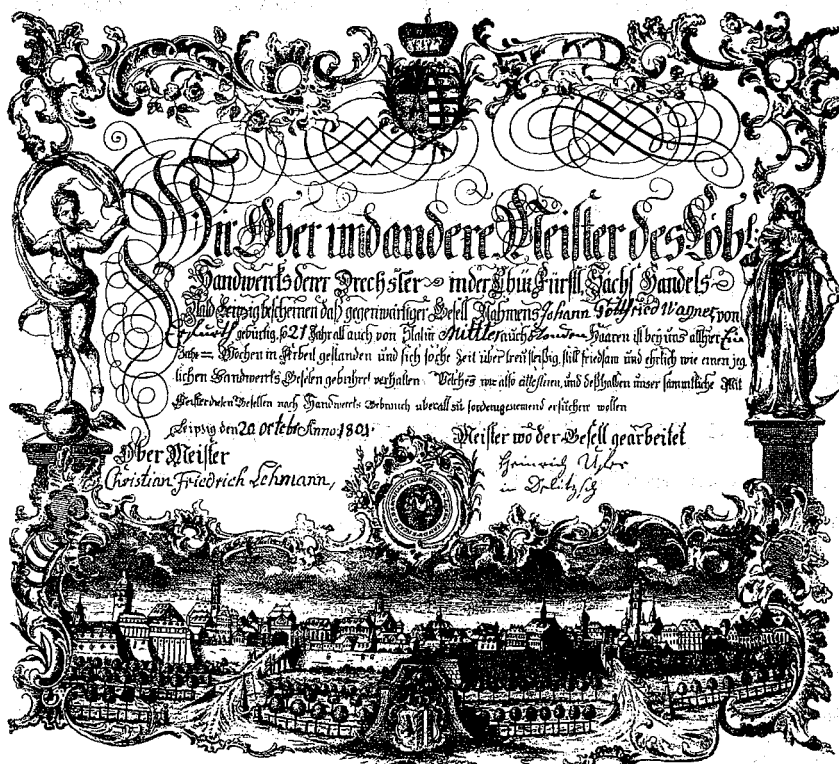 Wir Ober und andere Meister des Löbl:
Handwerks derer Drechsler in der Chur Fürstl. Sächs Handels
Stadt Leipzig bescheinen daß gegenwärtiger Gesell Nahmens Johann Gottfried Wagner von
Erfurth gebürtig, so 21 Jahr alt auch von Statur Mittler auch blonden Haaren ist bey uns allhier
Jahr = Wochen in Arbeit gestanden und sich solche Zeit über treu fleißig, still friedsam und ehrlich wie einen jeg
lichen Handwerks Gesellen gebühret verhalten Welches wir also attestiren, und deßhalben unser sämmtliche Mit
Meister diesen Gesellen nach Handwerks Gebrauch überall zu fördern geziemend ersuchen wollen
Leipzig den 20 octobr Anno: 1801
Ober Meister
Meister wo der Gesell gearbeitet
Christian Friedrich Lehmann,
Heinrich
in Delitzsch